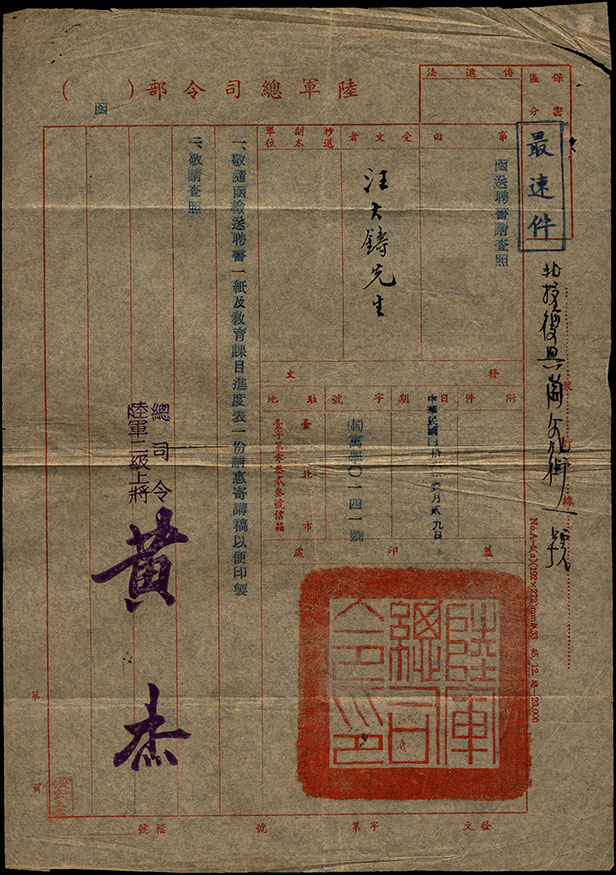 陸軍總司令部（　　）函
保密區分
傳遞法
最速件
北投復興崗文化街一號
事由
函送聘書請查照
受文者
汪大鑄先生
抄送副本單位
發文
附件
日期
中華民國
月貳九日
字號
學〇一四一號
駐地
臺北市
臺字第
號信箱
蓋印處
陸軍總司令印
一、敬隨函檢送聘書一紙及教育課目進度表一份請惠寄講稿以便印製
二、敬請查照
總司令
陸軍二級上將
黃杰
第
頁
發文
字第
號
檔號
No.A-4(a)(192×272)mm
45. 12.
20,000